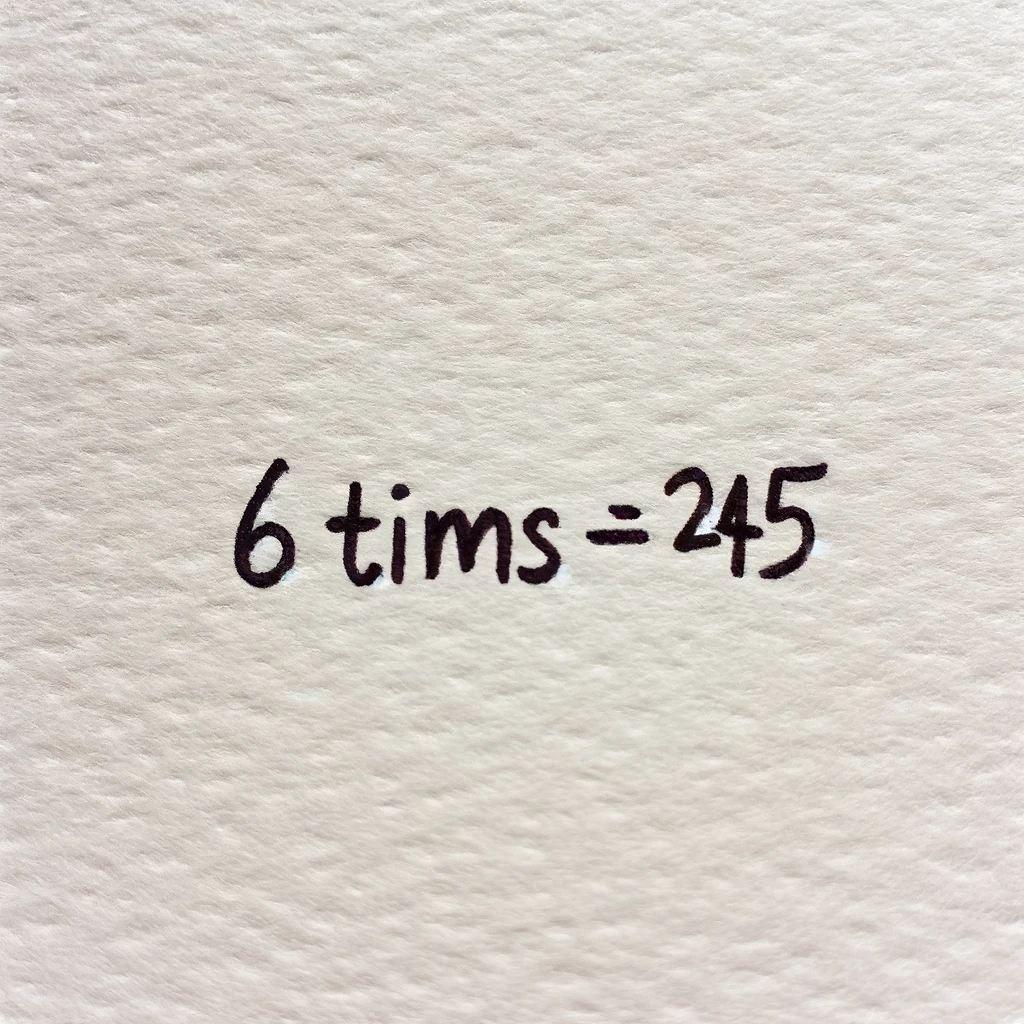 6 tims = 245